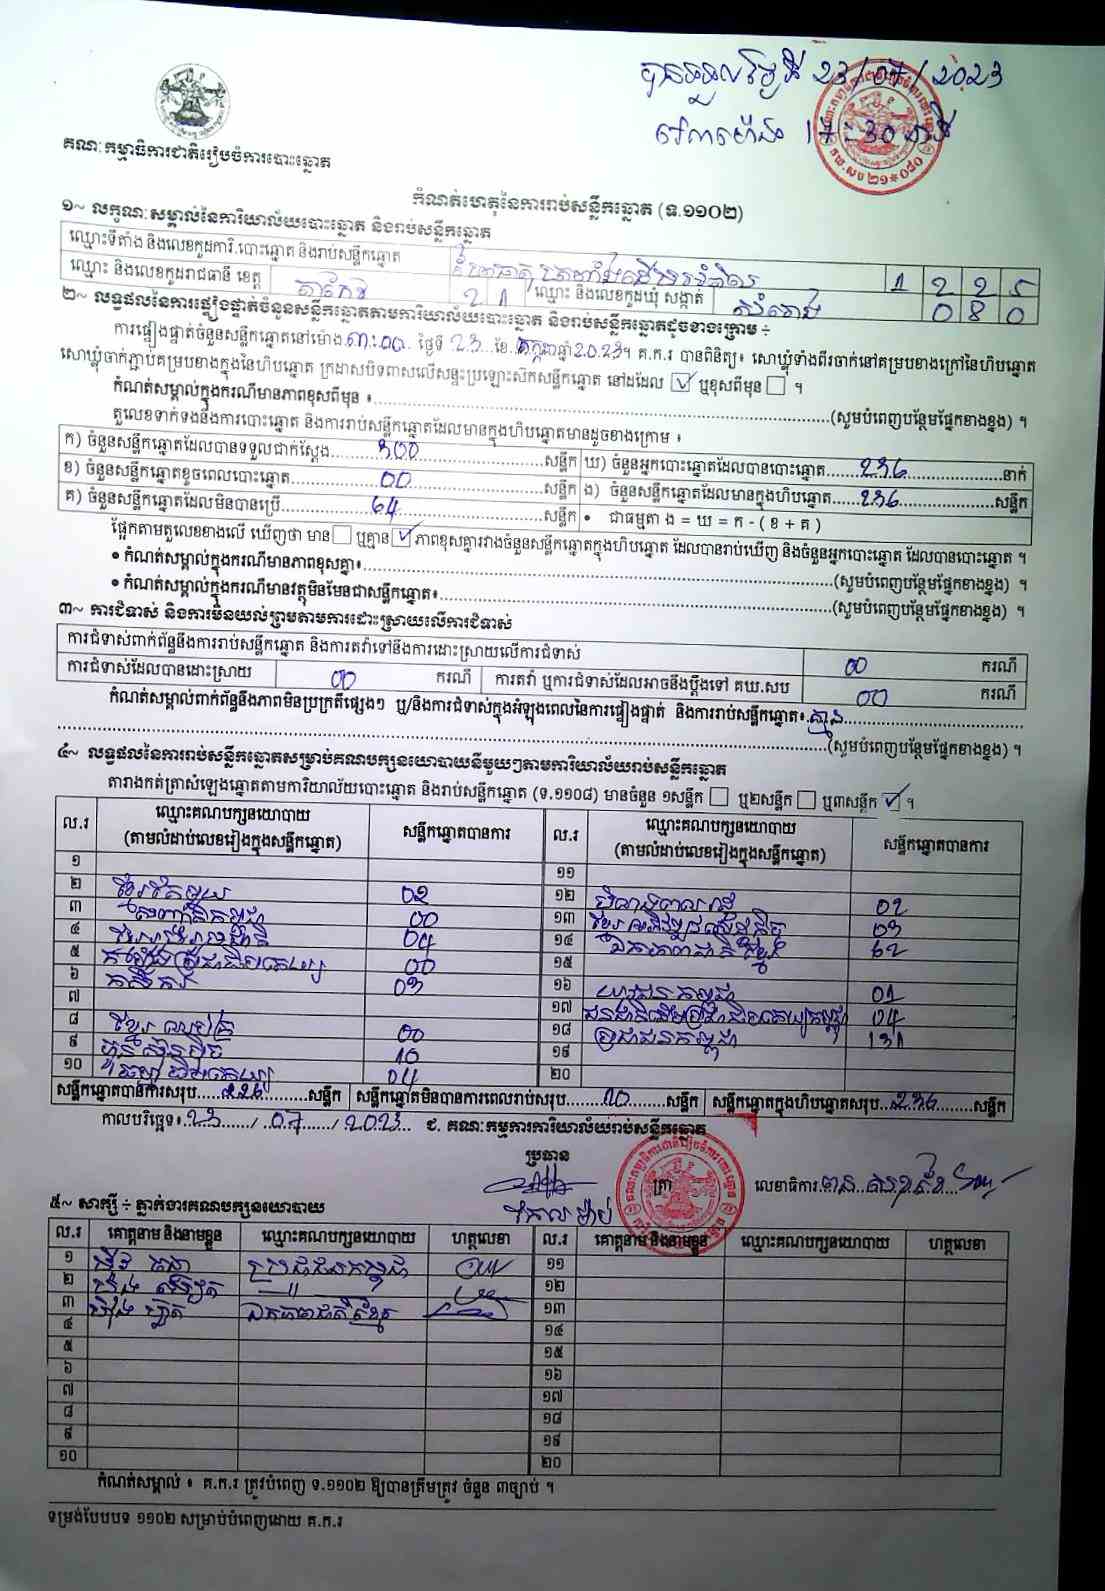 បានទទួលថ្ងៃទី 23/07/2023
វេលាម៉ោង 17:30 នាទី
គណៈកម្មាធិការជាតិរៀបចំការបោះឆ្នោត
កំណត់ហេតុនៃការរាប់សន្លឹកឆ្នោត (ទ.១១០២)
១~ លក្ខណៈសម្គាល់នៃការិយាល័យបោះឆ្នោត និងរាប់សន្លឹកឆ្នោត
ឈ្មោះទីតាំង និងលេខកូដការិ.បោះឆ្នោត និងរាប់សន្លឹកឆ្នោត 1 2 2 5
ឈ្មោះ និងលេខកូដរាជធានី ខេត្ត តាកែវ 2 1 ឈ្មោះ និងលេខកូដឃុំ សង្កាត់ សំរោង 0 8 0
២~ លទ្ធផលនៃការផ្ទៀងផ្ទាត់ចំនួនសន្លឹកឆ្នោតតាមការិយាល័យបោះឆ្នោត និងរាប់សន្លឹកឆ្នោតដូចខាងក្រោម ÷
ការផ្ទៀងផ្ទាត់ចំនួនសន្លឹកឆ្នោតនៅម៉ោង ៣:00 ថ្ងៃទី 23 ខែ កក្កដា ឆ្នាំ 2023។ គ.ក.រ បានពិនិត្យ៖ សោឃ្លុំទាំងពីរចាក់នៅគម្របខាងក្រៅនៃហិបឆ្នោត
សោឃ្លុំចាក់ភ្ជាប់គម្របខាងក្នុងនៃហិបឆ្នោត ក្រដាសបិទពាសលើសន្ទះប្រឡោះស៊កសន្លឹកឆ្នោត នៅដដែល ☑ ឬខុសពីមុន ☐ ។
កំណត់សម្គាល់ក្នុងករណីមានភាពខុសពីមុន ៖ (សូមបំពេញបន្ថែមផ្នែកខាងខ្នង) ។
តួលេខទាក់ទងនឹងការបោះឆ្នោត និងការរាប់សន្លឹកឆ្នោតដែលមានក្នុងហិបឆ្នោតមានដូចខាងក្រោម ៖
ក) ចំនួនសន្លឹកឆ្នោតដែលបានទទួលជាក់ស្តែង 300 សន្លឹក ឃ) ចំនួនអ្នកបោះឆ្នោតដែលបានបោះឆ្នោត 236 នាក់
ខ) ចំនួនសន្លឹកឆ្នោតខូចពេលបោះឆ្នោត 00 សន្លឹក ង) ចំនួនសន្លឹកឆ្នោតដែលមានក្នុងហិបឆ្នោត 236 សន្លឹក
គ) ចំនួនសន្លឹកឆ្នោតដែលមិនបានប្រើ 64 សន្លឹក • ជាធម្មតា ង = ឃ = ក - ( ខ + គ )
ផ្អែកតាមតួលេខខាងលើ ឃើញថា មាន ☐ ឬគ្មាន ☑ ភាពខុសគ្នារវាងចំនួនសន្លឹកឆ្នោតក្នុងហិបឆ្នោត ដែលបានរាប់ឃើញ និងចំនួនអ្នកបោះឆ្នោត ដែលបានបោះឆ្នោត ។
• កំណត់សម្គាល់ក្នុងករណីមានភាពខុសគ្នា៖ (សូមបំពេញបន្ថែមផ្នែកខាងខ្នង) ។
• កំណត់សម្គាល់ក្នុងករណីមានវត្ថុមិនមែនជាសន្លឹកឆ្នោត៖ (សូមបំពេញបន្ថែមផ្នែកខាងខ្នង) ។
៣~ ការជំទាស់ និងការមិនយល់ព្រមតាមការដោះស្រាយលើការជំទាស់
ការជំទាស់ពាក់ព័ន្ធនឹងការរាប់សន្លឹកឆ្នោត និងការតវ៉ាទៅនឹងការដោះស្រាយលើការជំទាស់ 00 ករណី
ការជំទាស់ដែលបានដោះស្រាយ 00 ករណី ការតវ៉ា ឬការជំទាស់ដែលអាចនឹងប្តឹងទៅ គឃ.សប 00 ករណី
កំណត់សម្គាល់ពាក់ព័ន្ធនឹងភាពមិនប្រក្រតីផ្សេងៗ ឬ/និងការជំទាស់ក្នុងអំឡុងពេលនៃការផ្ទៀងផ្ទាត់ និងការរាប់សន្លឹកឆ្នោត៖ គ្មាន
(សូមបំពេញបន្ថែមផ្នែកខាងខ្នង) ។
៤~ លទ្ធផលនៃការរាប់សន្លឹកឆ្នោតសម្រាប់គណបក្សនយោបាយនីមួយៗតាមការិយាល័យរាប់សន្លឹកឆ្នោត
តារាងកត់ត្រាសំឡេងឆ្នោតតាមការិយាល័យបោះឆ្នោត និងរាប់សន្លឹកឆ្នោត (ទ.១១០៨) មានចំនួន ១សន្លឹក ☐ ឬ២សន្លឹក ☐ ឬ៣សន្លឹក ☑ ។
ល.រ ឈ្មោះគណបក្សនយោបាយ (តាមលំដាប់លេខរៀងក្នុងសន្លឹកឆ្នោត) សន្លឹកឆ្នោតបានការ ល.រ ឈ្មោះគណបក្សនយោបាយ (តាមលំដាប់លេខរៀងក្នុងសន្លឹកឆ្នោត) សន្លឹកឆ្នោតបានការ
១ ១១
២ ខ្មែរតែមួយ 02 ១២ 02
៣ សញ្ជាតិកម្ពុជា 00 ១៣ ខ្មែរអភិវឌ្ឍន៍សេដ្ឋកិច្ច 03
៤ ខ្មែររួបរួមជាតិ 04 ១៤ ឯកភាពជាតិខ្មែរ 62
៥ សំបុកឃ្មុំ 00 ១៥
៦ កសិករ 03 ១៦ យុវជនកម្ពុជា 01
៧ ១៧ ជនជាតិដើមប្រជាធិបតេយ្យកម្ពុជា
៨ ខ្មែរ 00 ១៨ ប្រជាជនកម្ពុជា 131
៩ ហ្វ៊ុនស៊ិនប៉ិច 10 ១៩
១០ ធម្មាធិបតេយ្យ 04 ២០
សន្លឹកឆ្នោតបានការសរុប 226 សន្លឹក សន្លឹកឆ្នោតមិនបានការពេលរាប់សរុប 10 សន្លឹក សន្លឹកឆ្នោតក្នុងហិបឆ្នោតសរុប 236 សន្លឹក
កាលបរិច្ឆេទ៖ 23 / 07 / 2023 ជ. គណៈកម្មការការិយាល័យរាប់សន្លឹកឆ្នោត
ប្រធាន
ត្រា លេខាធិការ
៥~ សាក្សី ÷ ភ្នាក់ងារគណបក្សនយោបាយ
ល.រ គោត្តនាម និងនាមខ្លួន ឈ្មោះគណបក្សនយោបាយ ហត្ថលេខា ល.រ គោត្តនាម និងនាមខ្លួន ឈ្មោះគណបក្សនយោបាយ ហត្ថលេខា
១ ប្រជាជនកម្ពុជា ១១
២ ១២
៣ ឯកភាពជាតិខ្មែរ ១៣
៤ ១៤
៥ ១៥
៦ ១៦
៧ ១៧
៨ ១៨
៩ ១៩
១០ ២០
កំណត់សម្គាល់ ៖ គ.ក.រ ត្រូវបំពេញ ទ.១១០២ ឱ្យបានត្រឹមត្រូវ ចំនួន ៣ច្បាប់ ។
ទម្រង់បែបបទ ១១០២ សម្រាប់បំពេញដោយ គ.ក.រ